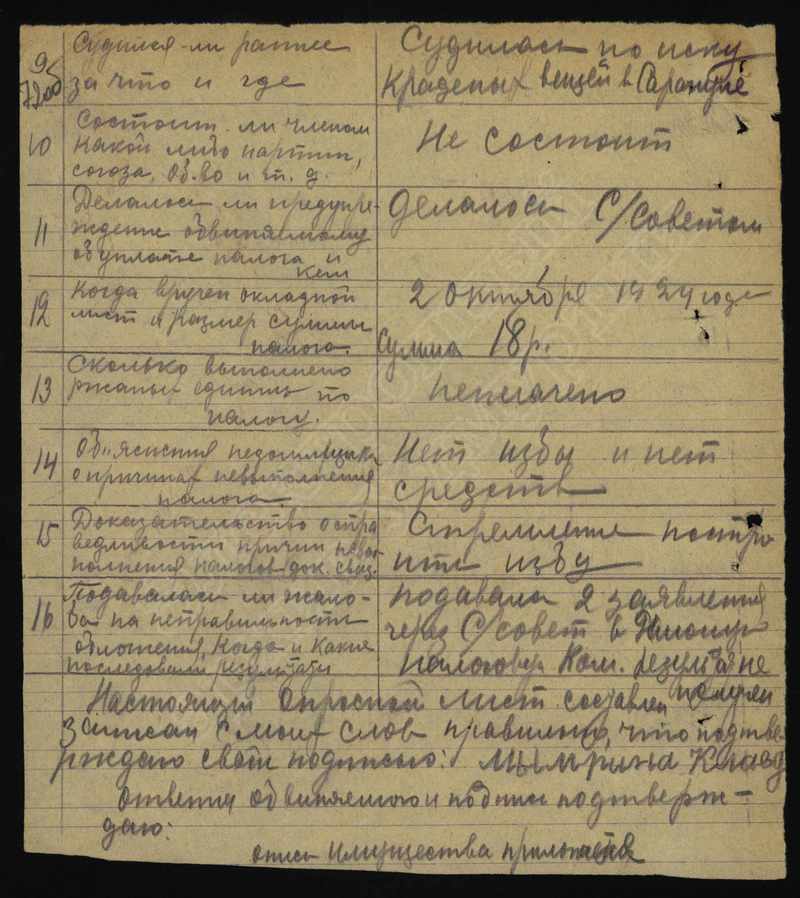 9 Судился-ли раннее
за что и где
Судилась по иску
Краденых вещей в Саранске
10 Состоит ли членом
какой либо партии,
союза, об-во и т. д.
Не состоит
11 Делалось ли предупре-
ждение обвиняемому
об уплате налога и
кем
Делалось С/Советом
12 Когда вручен окладной
лист и размер суммы
налога.
2 октября 1924 года
Сумма 18 р.
13 Сколько выполнено
ржаных единиц по
налогу.
неплачено
14 Об"яснения недоимщика
о причинах невыполнения
налога.
Нет избы и нет
средств
15 Доказательство о спра
ведливости причин невы
полнения налогов док. свид.
Стремление постро
ить избу
16 Подавалась ли жало-
ба на неправильность
обложения, когда и какие
последовали результаты
подавала 2 заявления
через С/совет в
налоговую Ком. результ. не
получен
Настоящий опросной лист составлен
записан с моих слов правильно, что подтве-
рждаю своей подписью: Мымрина
ответы обвиняемого и подпись подтверж-
даю:
опись имущества приложена